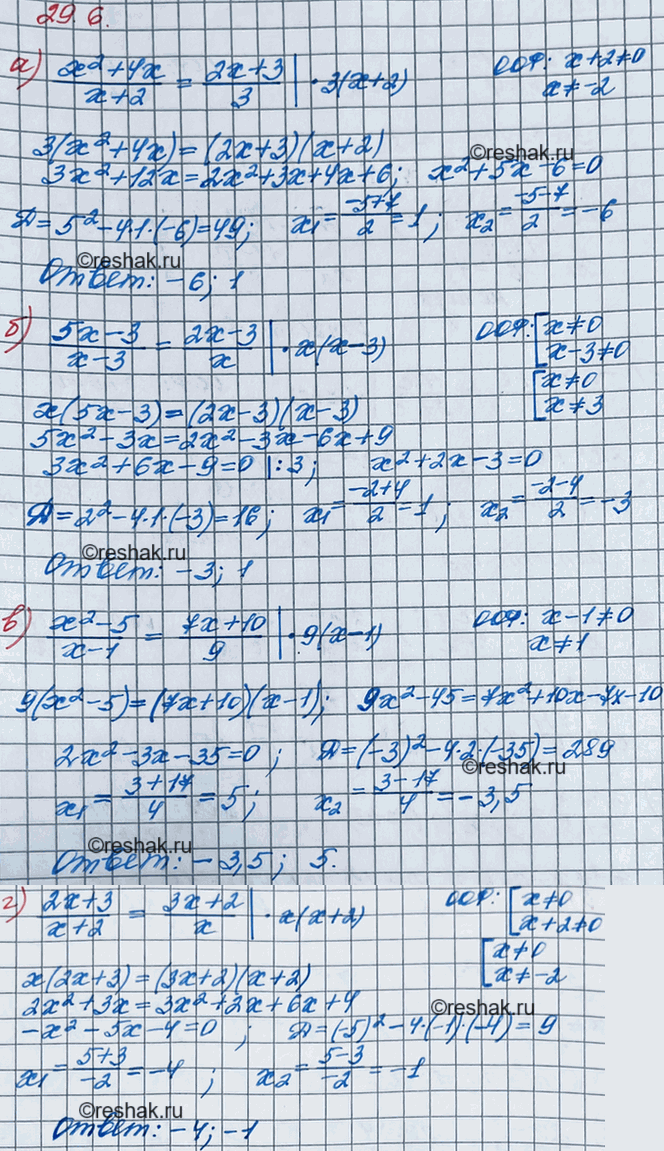 29.6.
а) (x²+4x)/(x+2) = (2x+3)/3 | · 3(x+2)   ООФ: x+2≠0
x≠-2
3(x²+4x)=(2x+3)(x+2)
©reshak.ru
3x²+12x=2x²+3x+4x+6;   x²+5x-6=0
Д=5²-4·1·(-6)=49;   x₁=(-5+7)/2=1;   x₂=(-5-7)/2=-6
©reshak.ru
Ответ: -6; 1
б) (5x-3)/(x-3) = (2x-3)/x | · x(x-3)   ООФ: [x≠0
[x-3≠0
[x≠0
[x≠3
x(5x-3)=(2x-3)(x-3)
5x²-3x=2x²-3x-6x+9
3x²+6x-9=0 |:3;   x²+2x-3=0
Д=2²-4·1·(-3)=16;   x₁=(-2+4)/2=1;   x₂=(-2-4)/2=-3
©reshak.ru
Ответ: -3; 1
в) (x²-5)/(x-1) = (7x+10)/9 | · 9(x-1)   ООФ: x-1≠0
x≠1
9(x²-5)=(7x+10)(x-1);   9x²-45=7x²+10x-7x-10
2x²-3x-35=0;   Д=(-3)²-4·2·(-35)=289
©reshak.ru
x₁=(3+17)/4=5;   x₂=(3-17)/4=-3,5
©reshak.ru
Ответ: -3,5; 5.
г) (2x+3)/(x+2) = (3x+2)/x | · x(x+2)   ООФ: [x≠0
[x+2≠0
[x≠0
[x≠-2
x(2x+3)=(3x+2)(x+2)
2x²+3x=3x²+2x+6x+4
©reshak.ru
-x²-5x-4=0;   Д=(-5)²-4·(-1)·(-4)=9
x₁=(5+3)/-2=-4;   x₂=(5-3)/-2=-1
©reshak.ru
Ответ: -4; -1